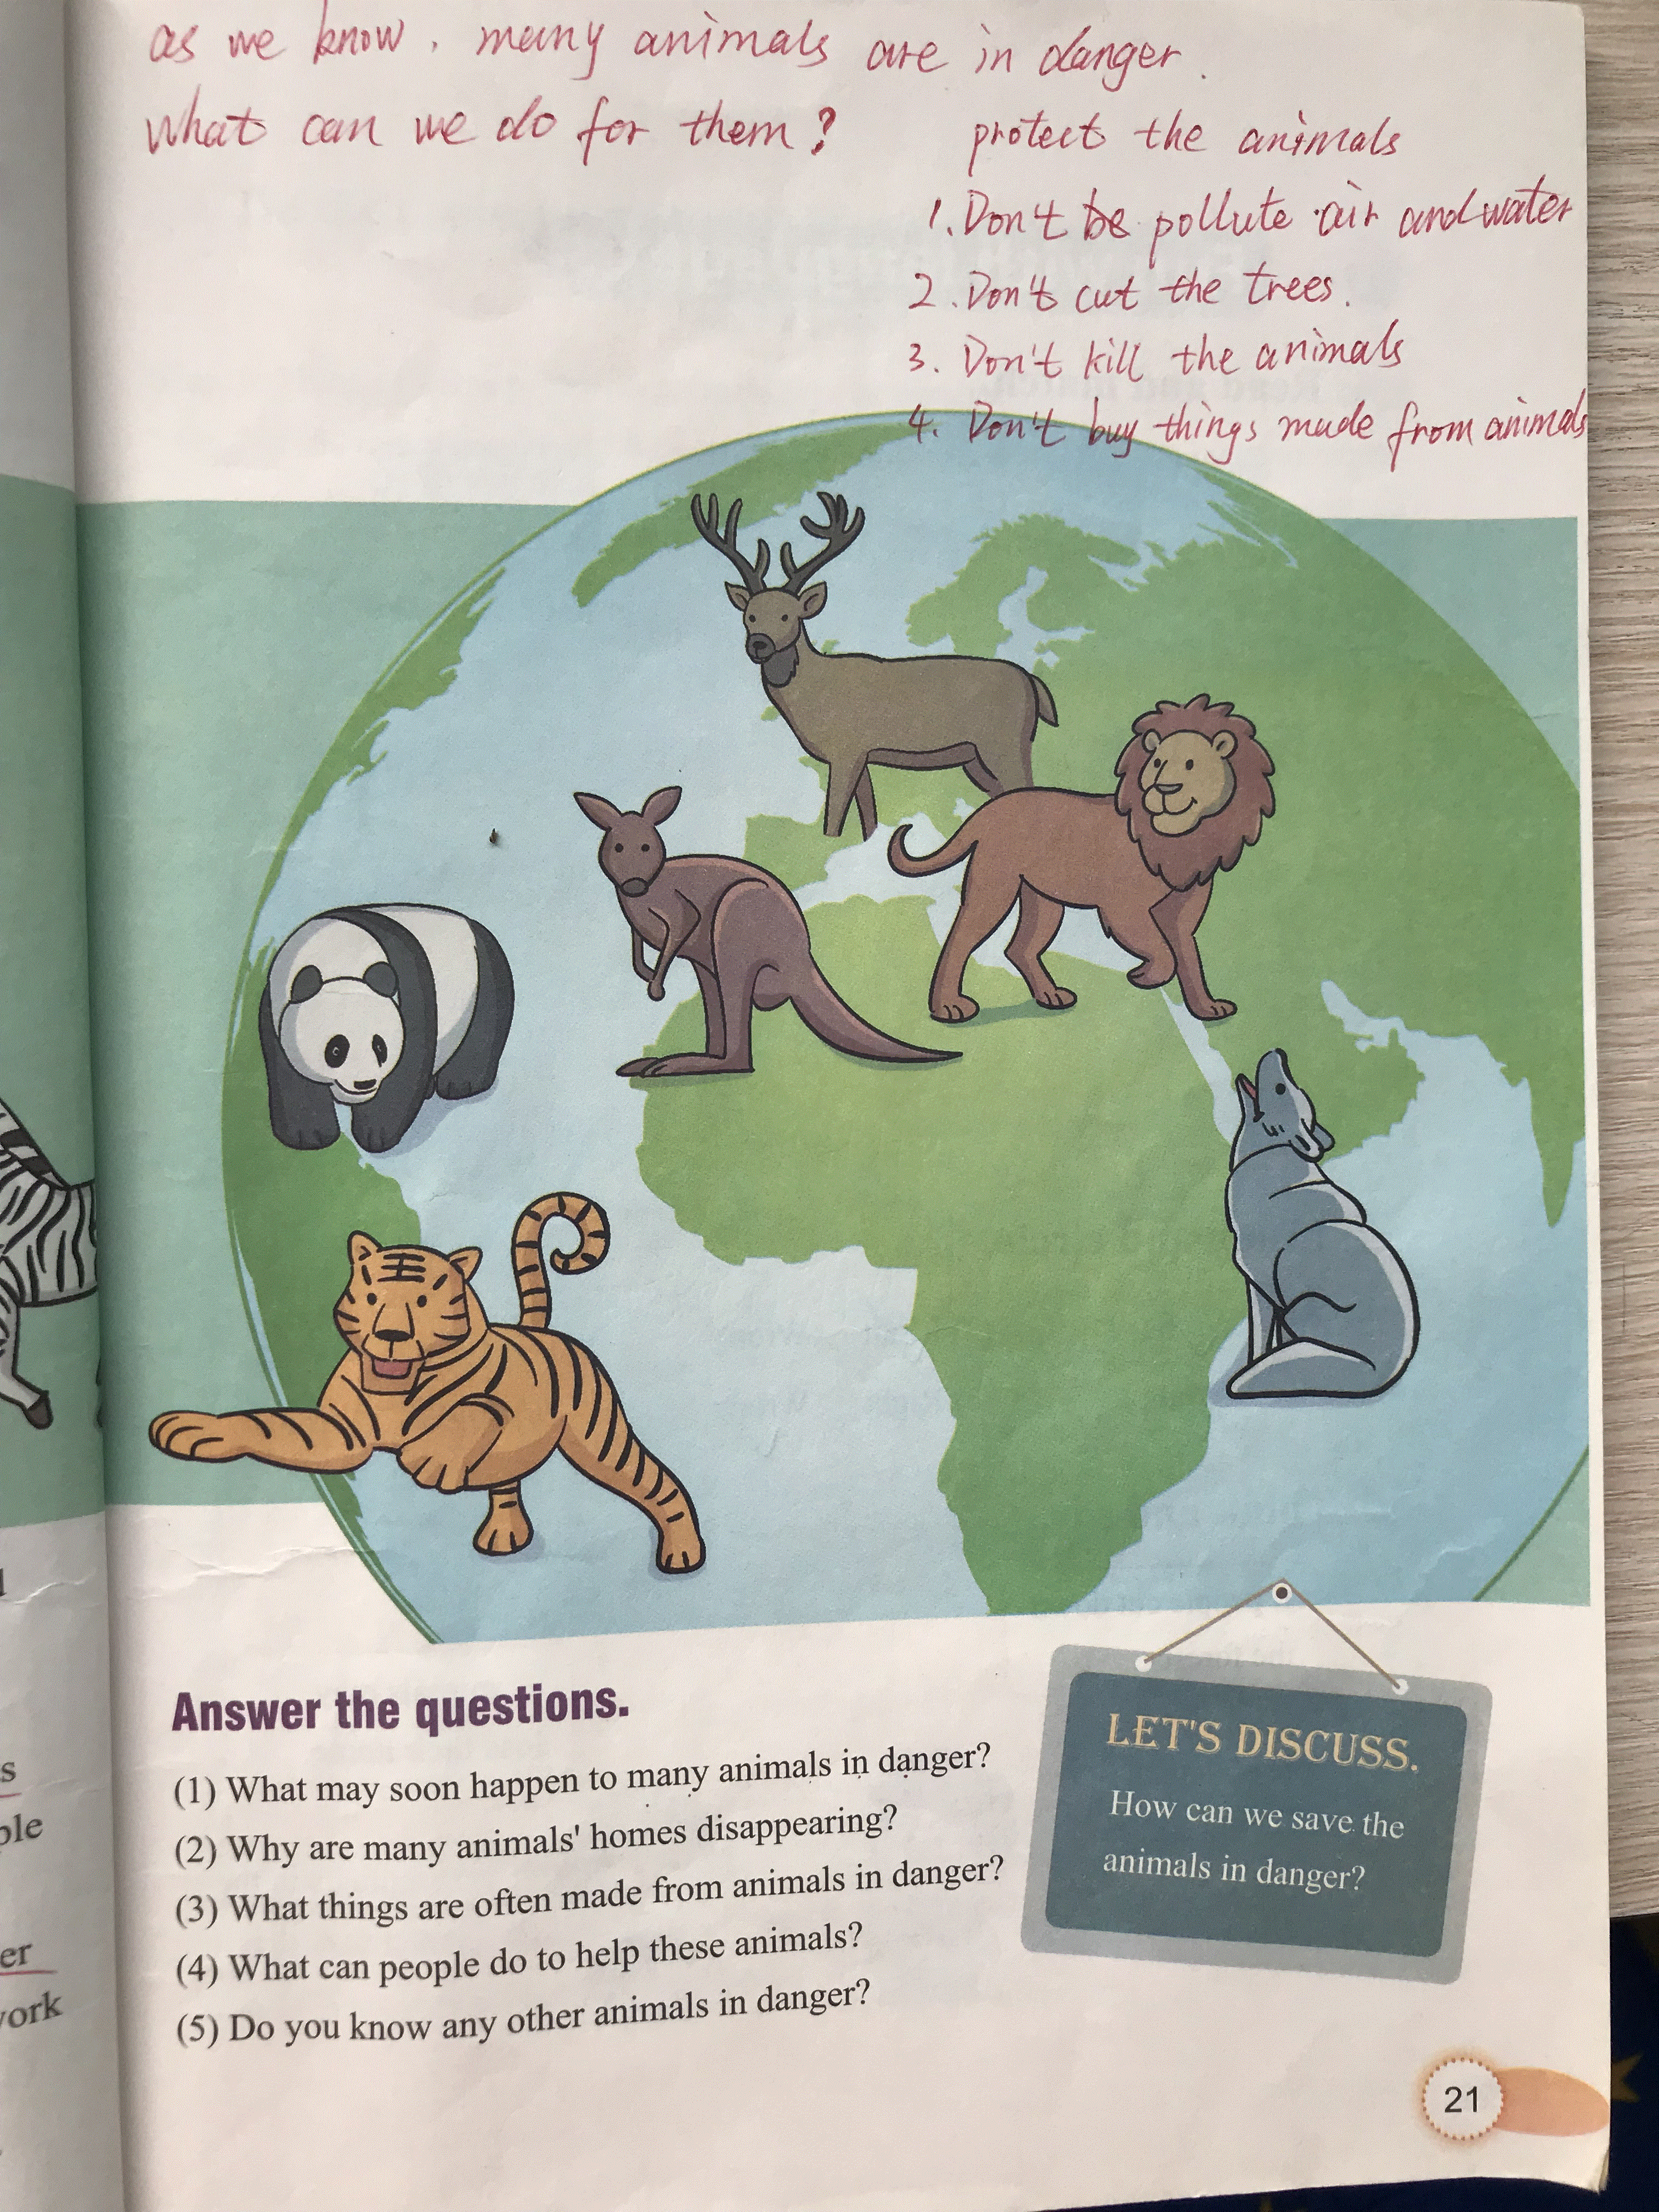 as we know, many animals are in danger.
what can we do for them?
protect the animals
1. Don't be pollute air and water
2. Don't cut the trees.
3. Don't kill the animals
4. Don't buy things made from animals
Answer the questions.
(1) What may soon happen to many animals in danger?
(2) Why are many animals' homes disappearing?
(3) What things are often made from animals in danger?
(4) What can people do to help these animals?
(5) Do you know any other animals in danger?
LET'S DISCUSS.
How can we save the
animals in danger?
21